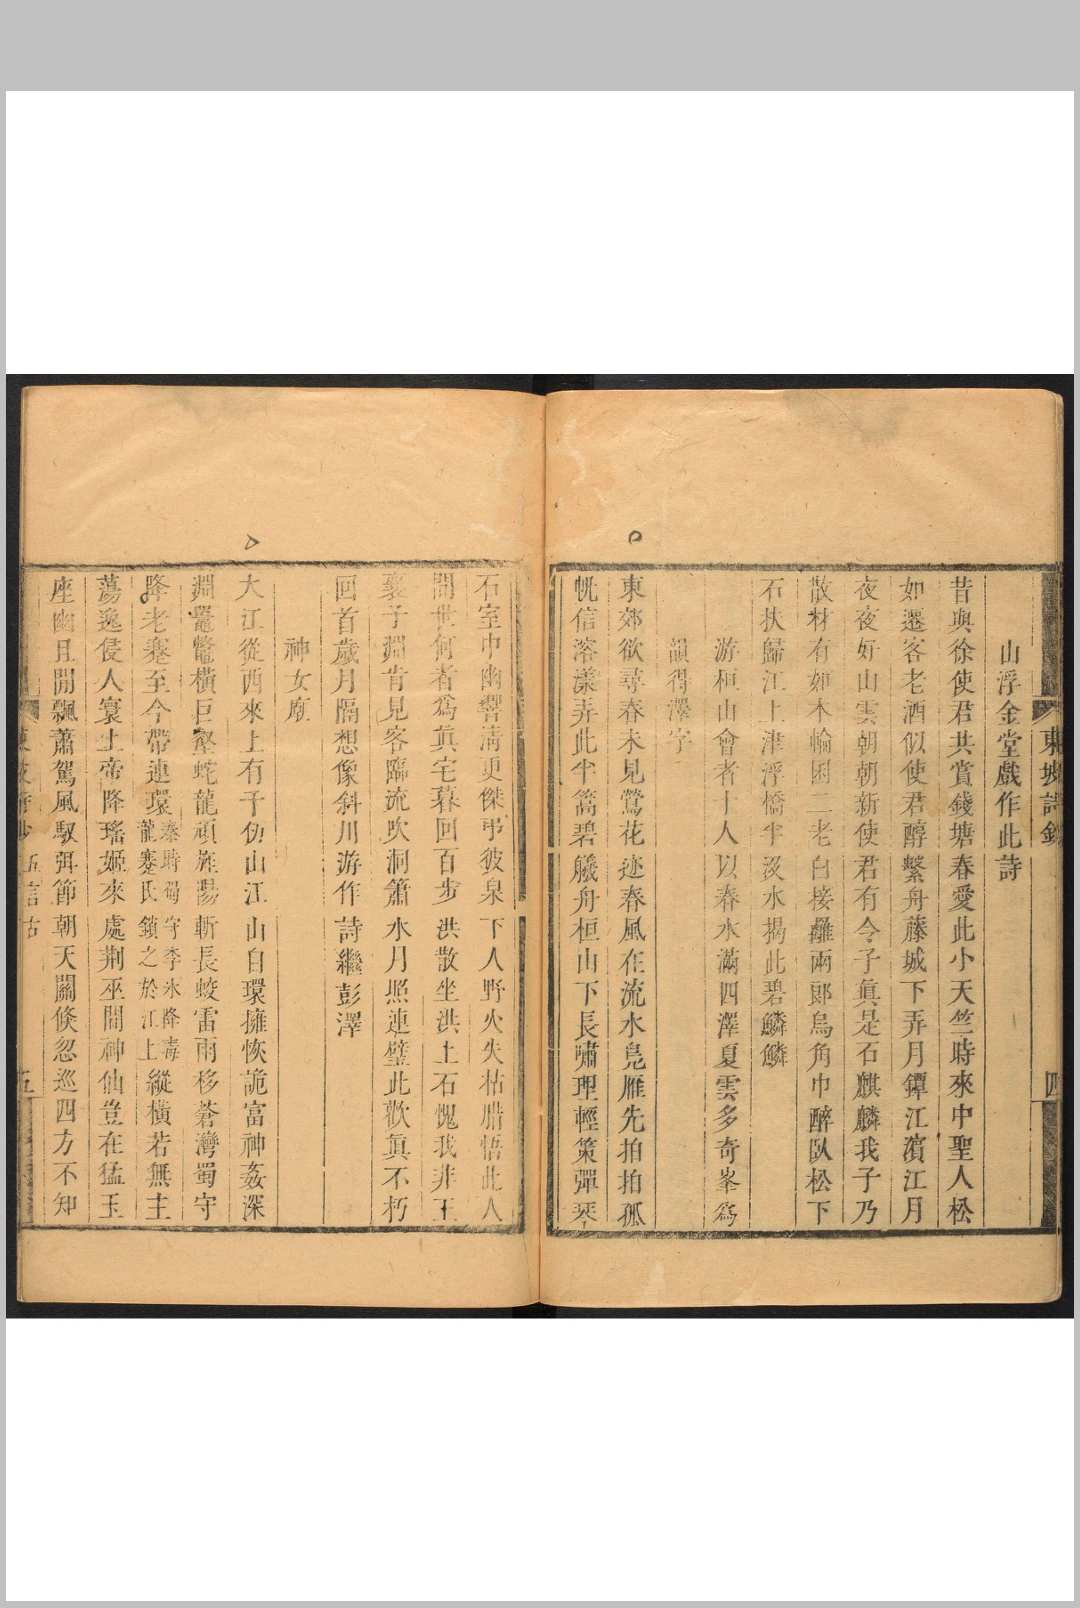 東坡詩鈔　四
山浮金堂戲作此詩
昔與徐使君共賞錢塘春愛此小天竺時來中聖人松
如遷客老酒似使君醇繫舟藤城下弄月鐔江濱江月
夜夜好山雲朝朝新使君有令子真是石麒麟我子乃
散材有如木輪囷二老白接䍦兩郎烏角巾醉臥松下
石扶歸江上津浮橋半沒水揭此碧鱗鱗
游桓山會者十人以春水滿四澤夏雲多奇峯爲
韻得澤字
東郊欲尋春未見鶯花迹春風在流水鳧雁先拍拍孤
帆信溶漾弄此半篙碧艤舟桓山下長嘯理輕策彈琴
石室中幽響清更傑弔彼泉下人野火失枯腊悟此人
間世何者爲真宅暮回百步洪散坐洪上石愧我非王
襄子淵肯見客臨流吹洞簫水月照連璧此歡真不朽
回首歲月隔想像斜川游作詩繼彭澤
神女廟
大江從西來上有千仞山江山自環擁恢詭富神姦深
淵鼉鼈橫巨壑蛇龍頑旌陽斬長蛟雷雨移蒼灣蜀守
降老蹇至今帶連環秦時蜀守李冰降毒龍蹇氏鎖之於江上縱橫若無主
蕩逸侵人寰上帝降瑤姬來處荆巫間神仙豈在猛玉
座幽且閒飄蕭駕風馭弭節朝天關倐忽巡四方不知
五言古　五